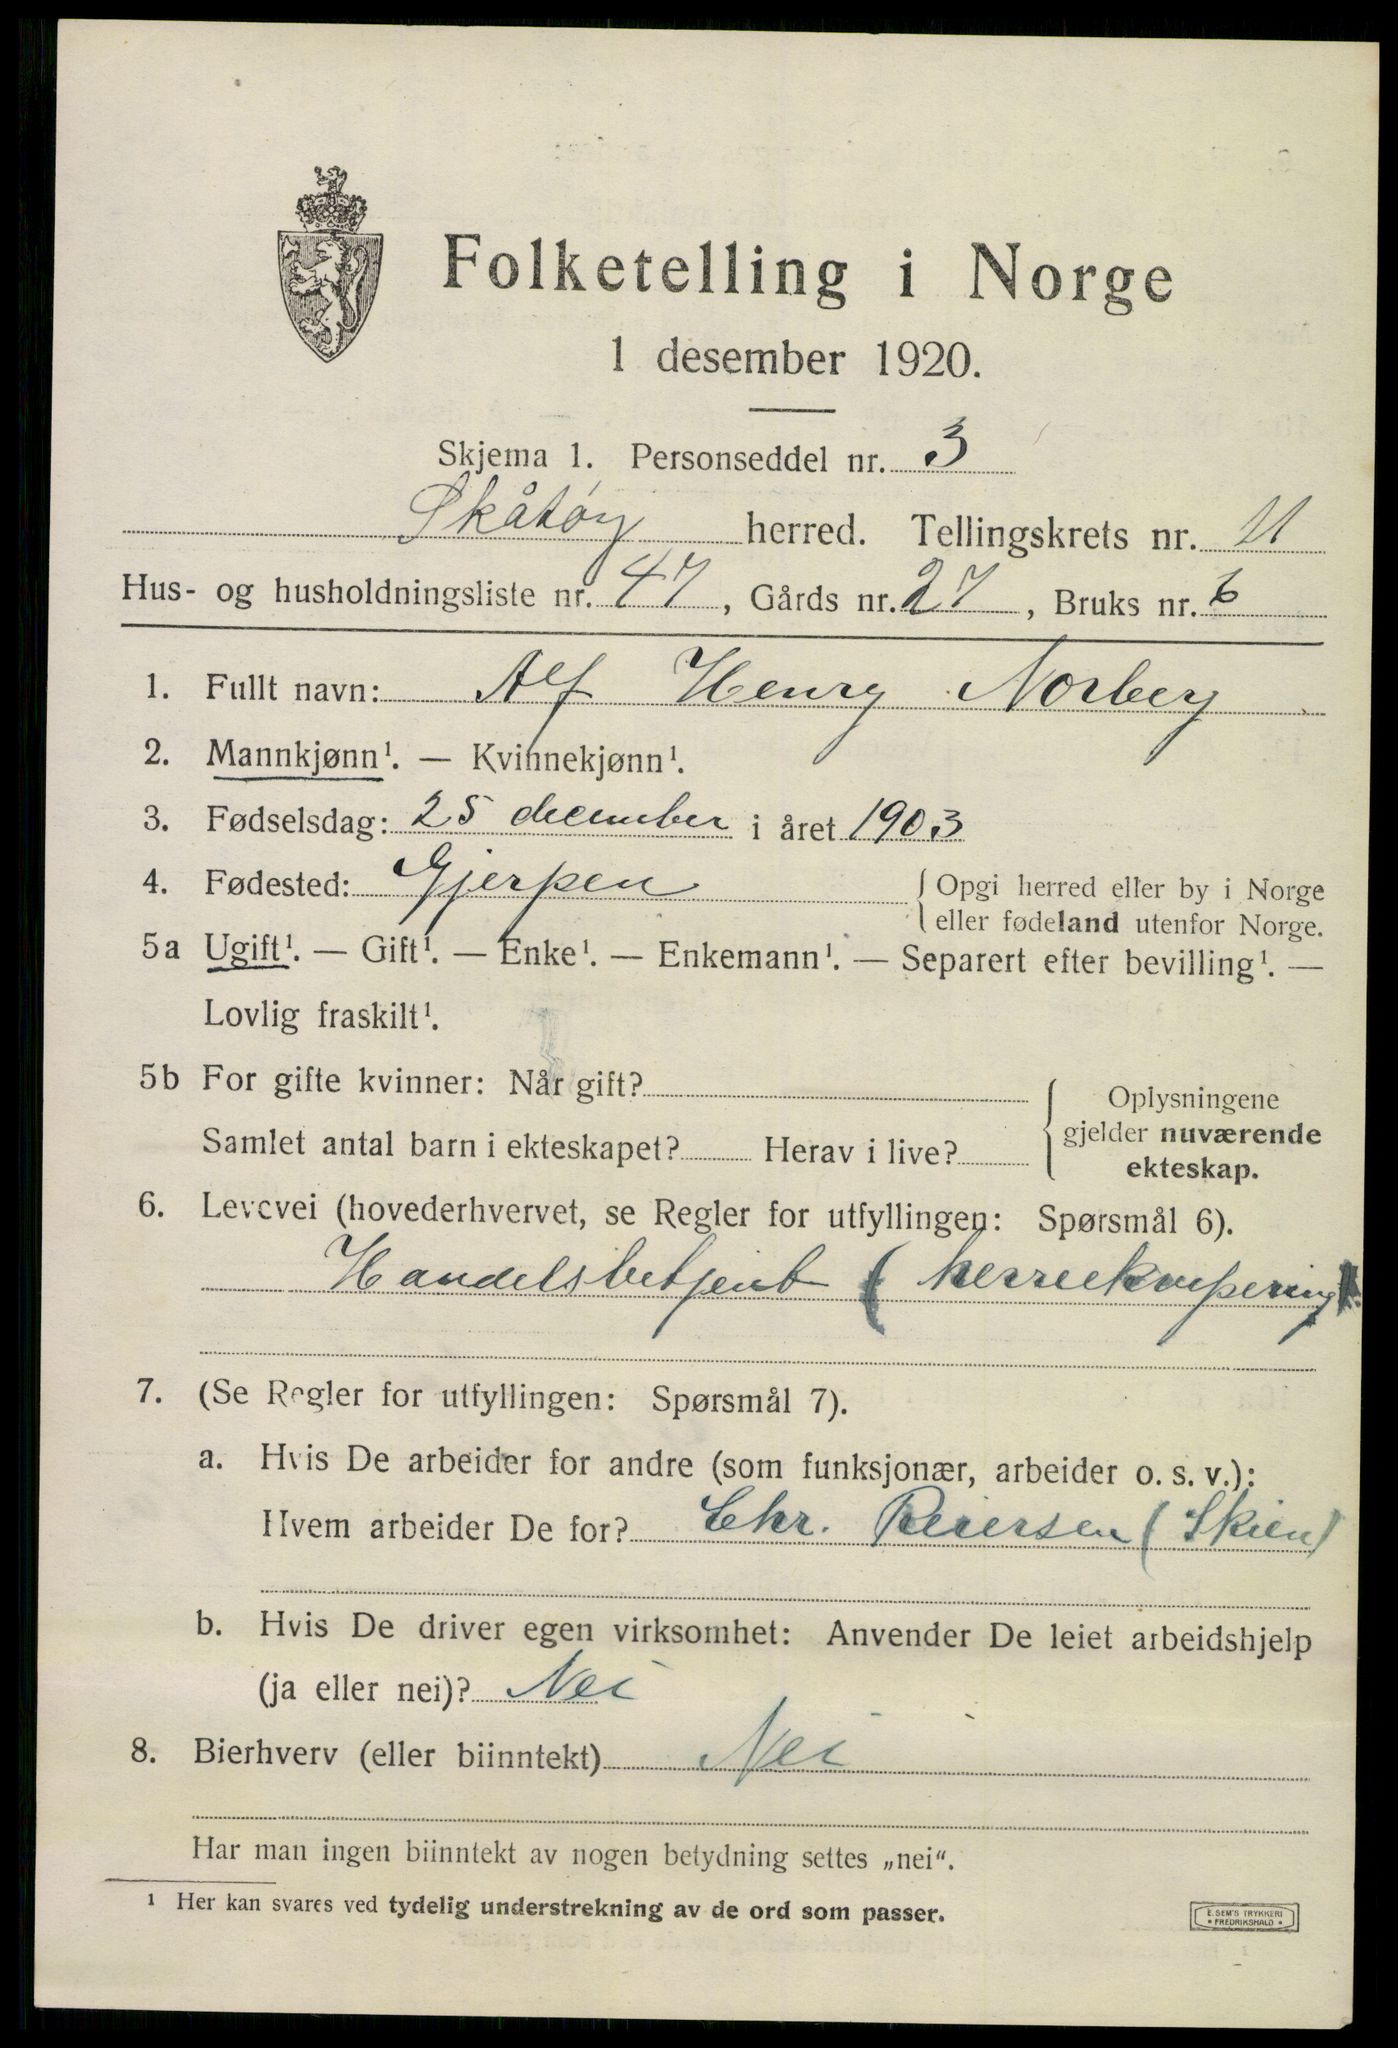 Folketelling i Norge
1 desember 1920.
Skjema 1. Personseddel nr. 3
Skåtøy herred. Tellingskrets nr. 11
Hus- og husholdningsliste nr. 47, Gårds nr. 27, Bruks nr. 6
1. Fullt navn: Alf Henry Norberg
2. Mannkjønn¹. — Kvinnekjønn¹.
3. Fødselsdag: 25 december i året 1903
4. Fødested: Gjerpen { Opgi herred eller by i Norge
eller fødeland utenfor Norge.
5a Ugift¹. — Gift¹. — Enke¹. — Enkemann¹. — Separert efter bevilling¹. —
Lovlig fraskilt¹.
5b For gifte kvinner: Når gift?
Samlet antal barn i ekteskapet? Herav i live?
{ Oplysningene
gjelder nuværende
ekteskap.
6. Levevei (hovederhvervet, se Regler for utfyllingen: Spørsmål 6).
Handelsbetjent (herreekvipering)
7. (Se Regler for utfyllingen: Spørsmål 7).
a. Hvis De arbeider for andre (som funksjonær, arbeider o. s. v.):
Hvem arbeider De for? Chr. Reiersen (Skien)
b. Hvis De driver egen virksomhet: Anvender De leiet arbeidshjelp
(ja eller nei)? Nei
8. Bierhverv (eller biinntekt) Nei
Har man ingen biinntekt av nogen betydning settes „nei“.
¹ Her kan svares ved tydelig understrekning av de ord som passer.
E. SEM'S TRYKKERI
• FREDRIKSHALD •